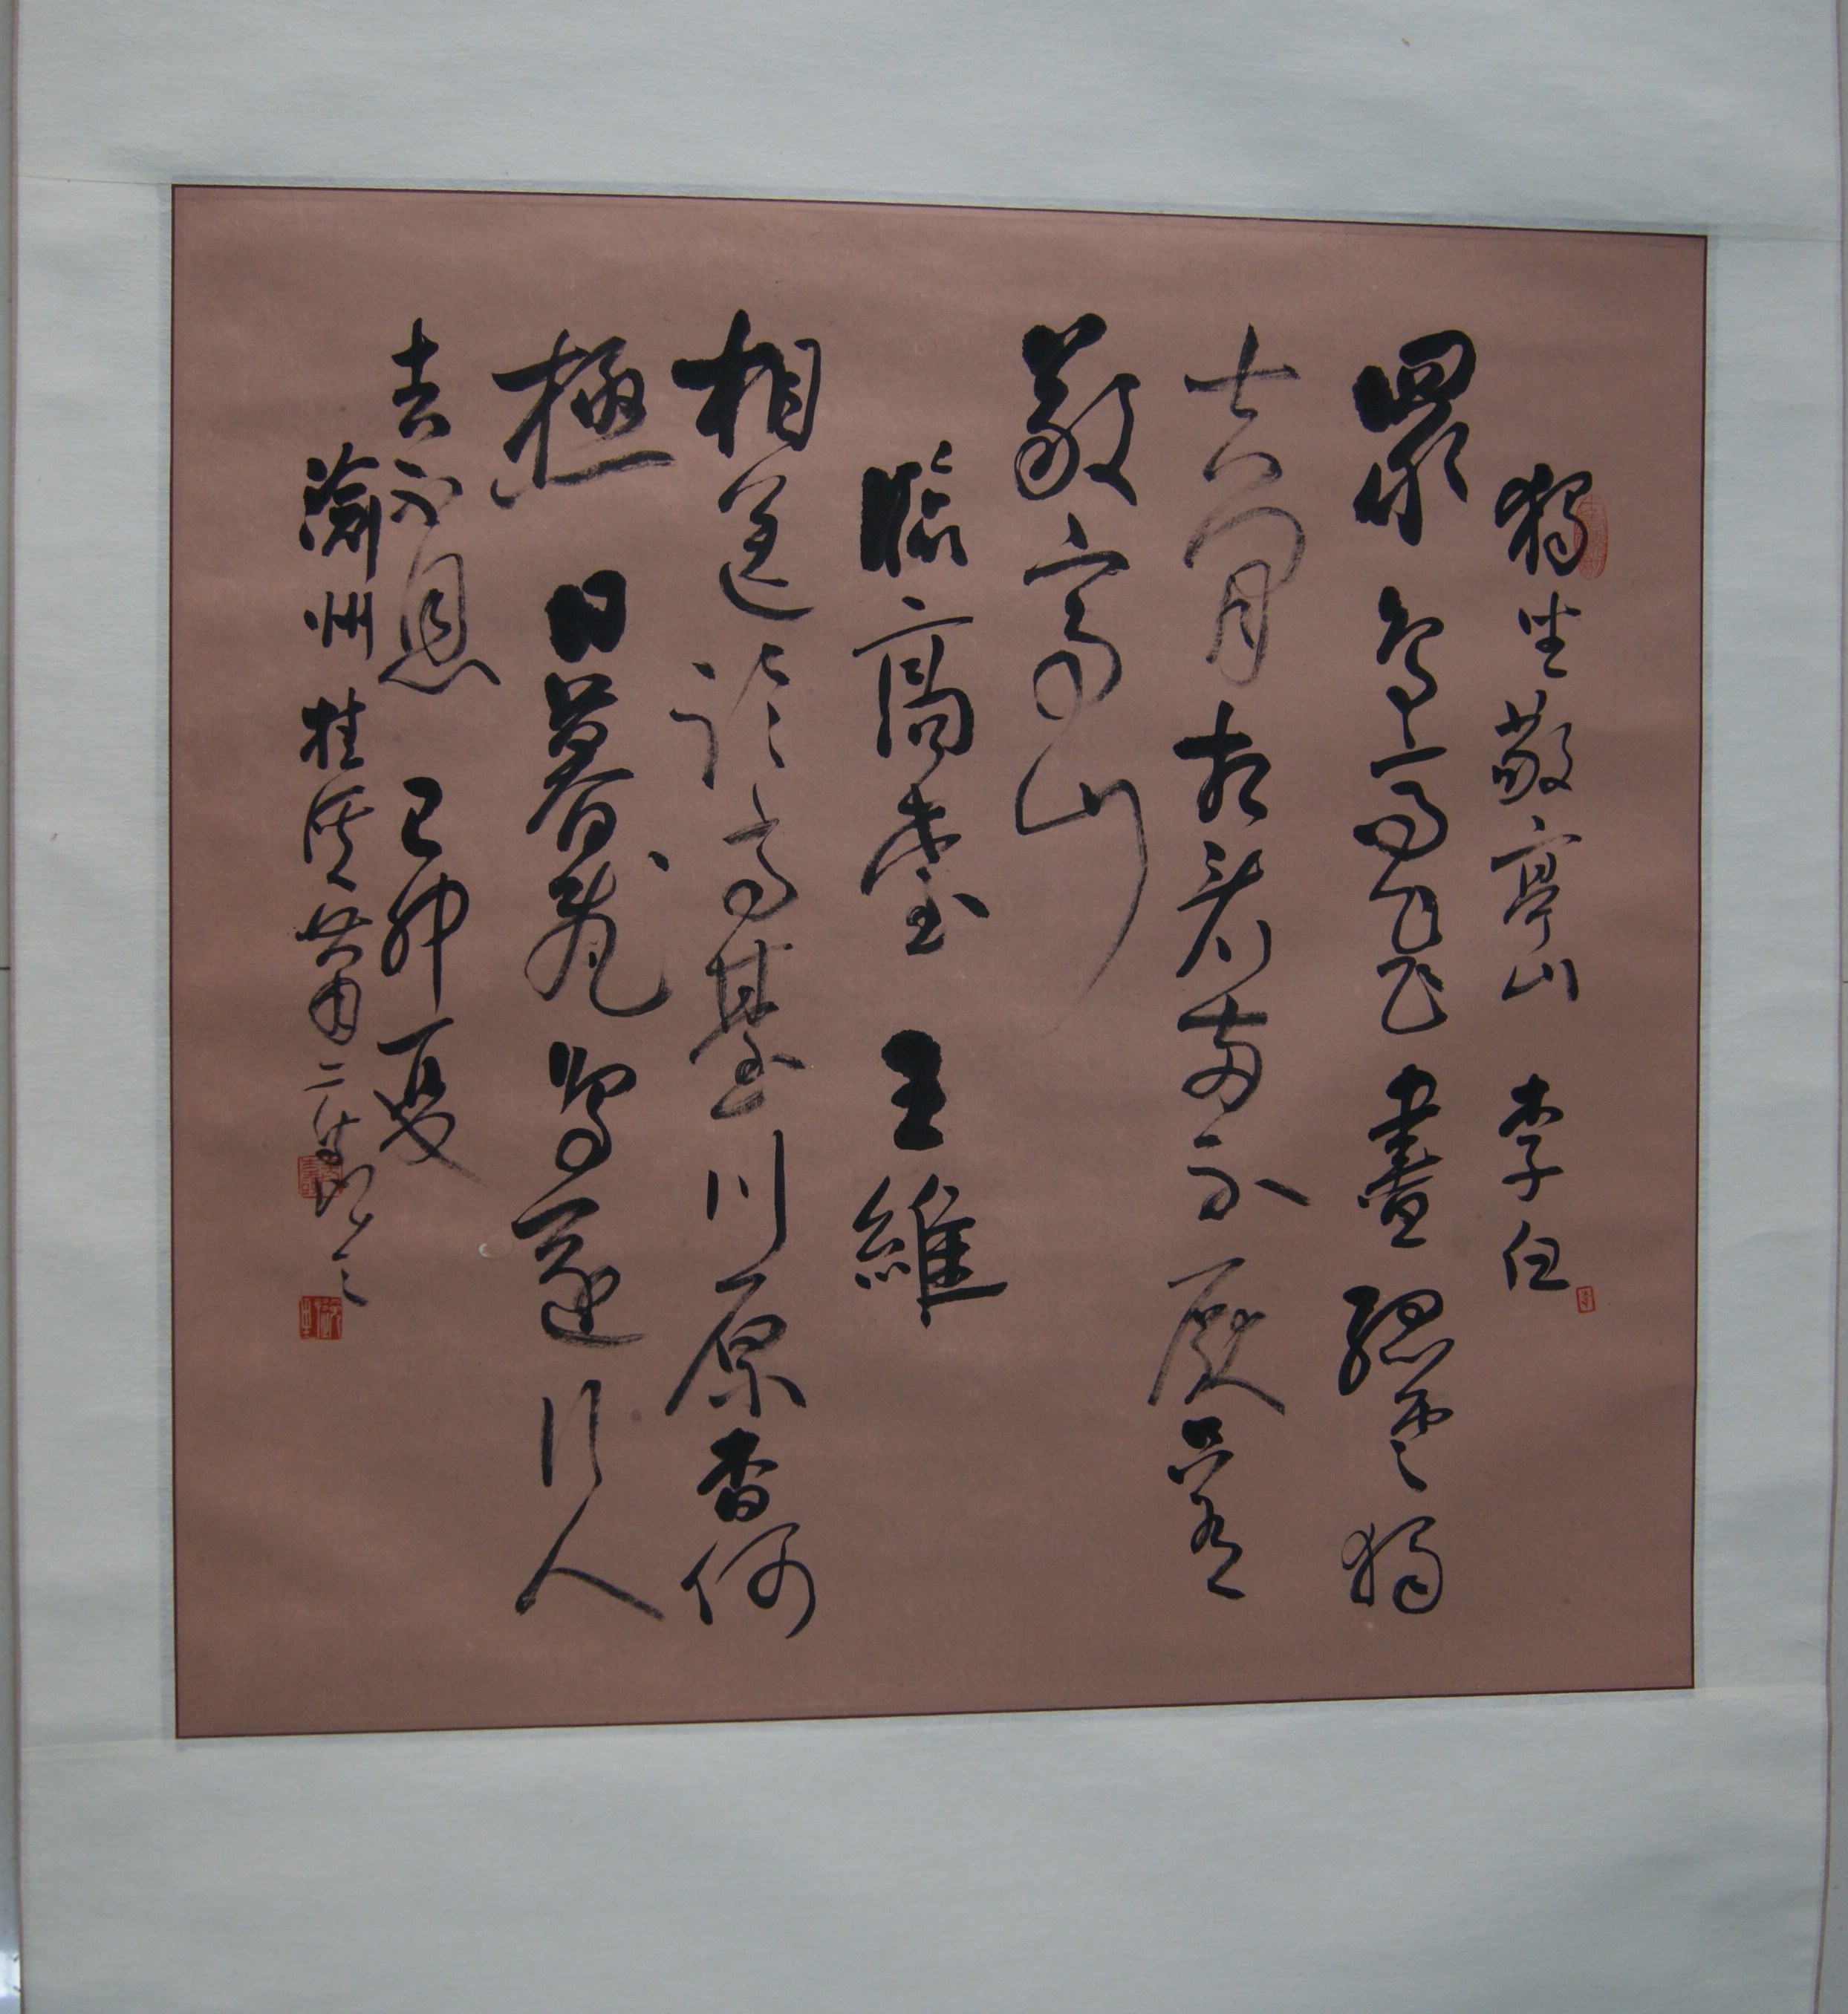 獨坐敬亭山 李白
眾鳥高飛盡 孤雲獨
去閒 相看兩不厭 只有
敬亭山
臨高臺 王維
相送臨高臺 川原杳何
極 日暮飛鳥還 行人
去不息 己卯夏
渝州 桂溪